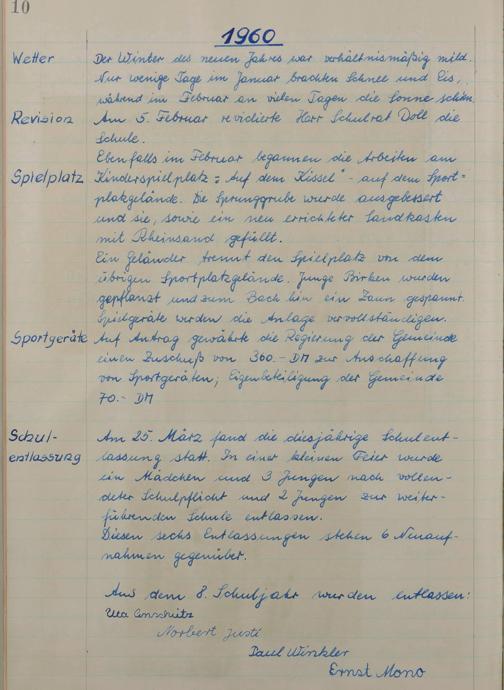 10
1960
Wetter Der Winter des neuen Jahres war verhältnismäßig mild.
Nur wenige Tage im Januar brachten Schnee und Eis,
während im Februar an vielen Tagen die Sonne schien.
Revision Am 5. Februar revidierte Herr Schulrat Doll die
Schule.
Ebenfalls im Februar begannen die Arbeiten am
Spielplatz Kinderspielplatz "Auf dem Kissel" - auf dem Sport-
platzgelände. Die Sprunggrube wurde ausgebessert
und sie, sowie ein neu errichteter Sandkasten
mit Rheinsand gefüllt.
Ein Geländer trennt den Spielplatz von dem
übrigen Sportplatzgelände. Junge Birken wurden
gepflanzt und zum Bach hin ein Zaun gespannt.
Spielgeräte werden die Anlage vervollständigen.
Sportgeräte Auf Antrag gewährte die Regierung der Gemeinde
einen Zuschuß von 360.- DM zur Anschaffung
von Sportgeräten; Eigenbeteiligung der Gemeinde
70.- DM
Schul- Am 25. März fand die diesjährige Schulent-
entlassung lassung statt. In einer kleinen Feier wurde
ein Mädchen und 3 Jungen nach vollen-
deter Schulpflicht und 2 Jungen zur weiter-
führenden Schule entlassen.
Diesen sechs Entlassungen stehen 6 Neuauf-
nahmen gegenüber.
Aus dem 8. Schuljahr wurden entlassen:
Norbert Justi
Paul Winkler
Ernst Mono